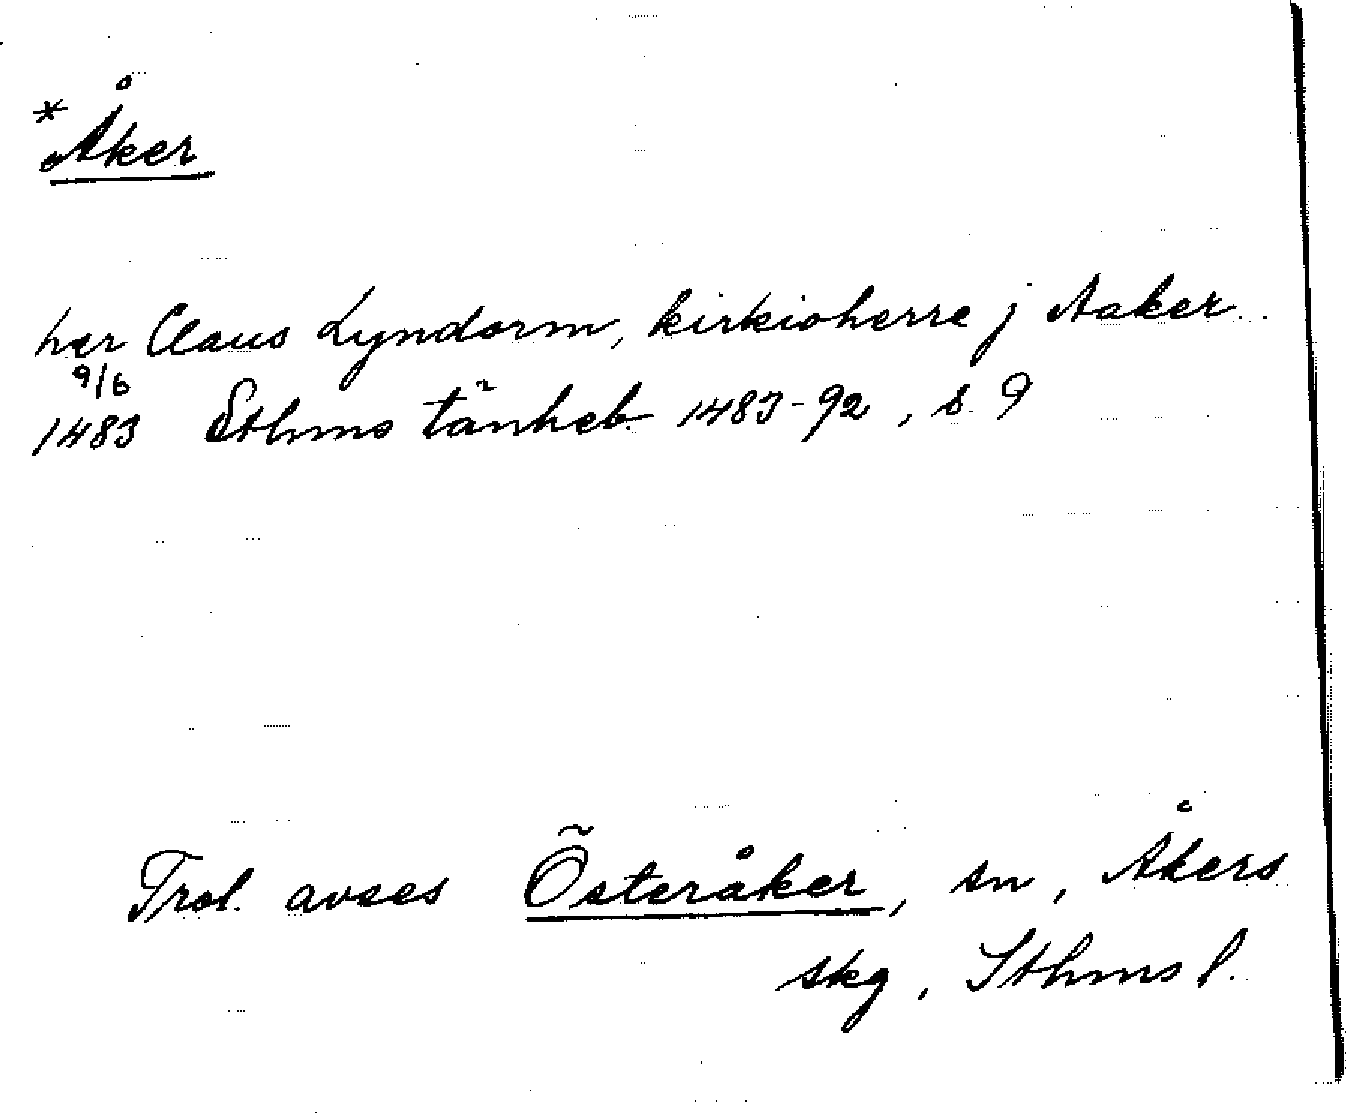 *Åker
her Claus Lyndorm, kirkioherre j Aaker
9/6
1483 Sthms tänkeb. 1483-92, s. 9
Trol. avses Österåker, sn, Åkers
skg, Sthms l.